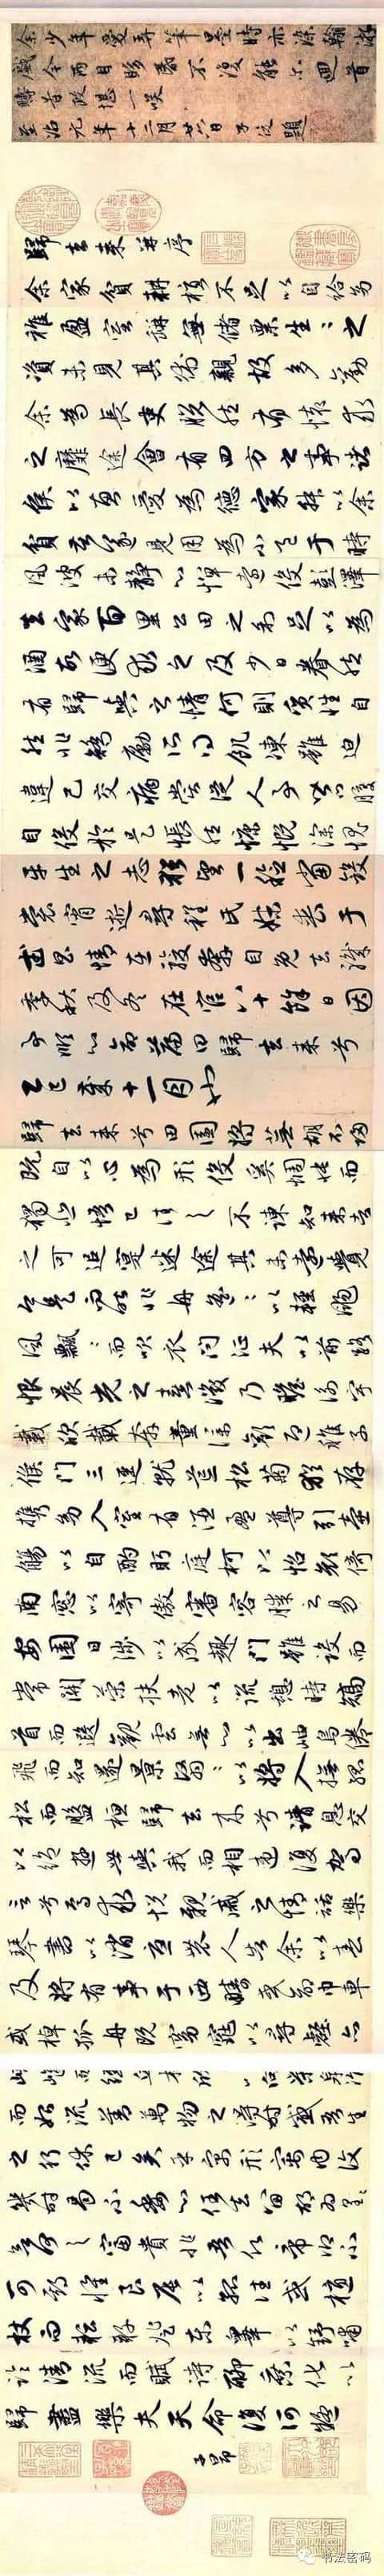 余少年愛弄筆墨時亦染翰游
戲今兩目眵昏不復能尓迴首
疇昔政堪一咲
至治元年十二月廿六日 題
歸去來并序
余家貧耕植不足以自給幼
稚盈室缾無儲粟生生之
資未見其術親故多勸
余為長吏脫然有懷求
之靡途會有四方之事諸
侯以惠愛為德家叔以余
貧苦遂見用為小邑于時
風波未靜心憚遠役彭澤
去家百里公田之利足以為
酒故便求之及少日眷然
有歸與之情何則質性自
然非矯勵所得飢凍雖迫
違己交病嘗從人事皆口腹
自役於是悵然慷慨深愧
平生之志猶望一稔當斂
裳宵逝尋程氏妹喪于
武昌情在駿奔自免去職
秋及冬在官八十餘日因
事順心命篇曰歸去來兮
乙巳歲十一月也
歸去來兮田園將蕪胡不歸
既自以心為形役奚惆悵而
獨悲悟已往之不諫知來者
之可追寔迷途其未遠覺
今是而昨非舟遙遙以輕颺
風飄飄而吹衣問征夫以前路
恨晨光之熹微乃瞻衡宇
載欣載奔童僕歡迎稚子
候門三逕就荒松菊猶存
攜幼入室有酒盈尊引壺
觴以自酌眄庭柯以怡顏倚
南窗以寄傲審容膝之易
安園日涉以成趣門雖設而
常關策扶老以流憩時矯
首而遐觀雲無心以出岫鳥倦
飛而知還景翳翳以將入撫孤
松而盤桓歸去來兮請息交
以絕遊世與我而相違復駕
言兮焉求悅親戚之情話樂
琴書以消憂農人告余以春
及將有事于西疇或命巾車
或棹孤舟既窈窕以尋壑亦
而始流善萬物之得時感吾生
之行休已矣乎寓形宇內復
幾時曷不委心任去留胡為
可期懷良辰以孤往或植
杖而耘耔登東皋以舒嘯
臨清流而賦詩聊乘化以
歸盡樂夫天命復何疑
子昂
书法密码